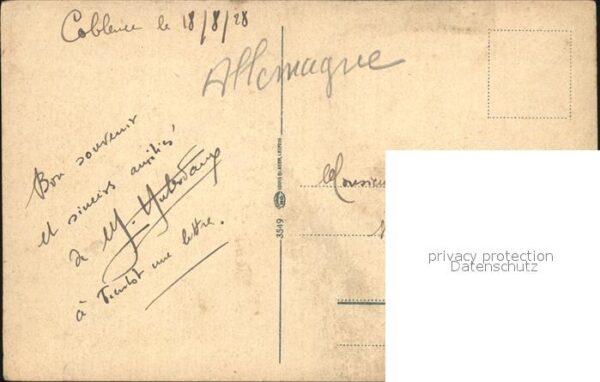 Coblence le 18/8/28
Allemagne
Bon souvenir
et sincères amitiés,
de M.
à bientôt une lettre.
3549
Monsieur
privacy protection
Datenschutz